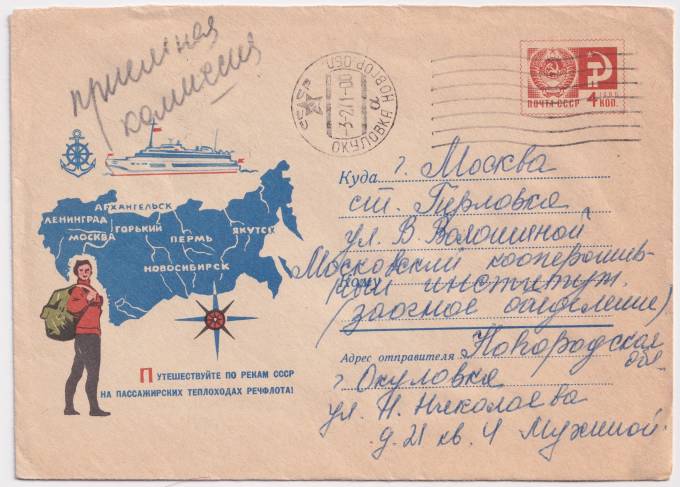 приемная
комиссия
СССР
ОКУЛОВКА НОВГОР.ОБЛ.
а
ПОЧТА СССР
4 КОП.
1966
АРХАНГЕЛЬСК
ЛЕНИНГРАД
МОСКВА
ГОРЬКИЙ
ПЕРМЬ
ЯКУТСК
НОВОСИБИРСК
ПУТЕШЕСТВУЙТЕ ПО РЕКАМ СССР
НА ПАССАЖИРСКИХ ТЕПЛОХОДАХ РЕЧФЛОТА!
Куда г. Москва
ст. Перловка
ул. В Волошиной
Московский кооператив-
Кому ный институт
(заочное отделение)
Адрес отправителя Новгородская
обл.
г Окуловка
ул. Н. Николаева
д. 21 кв. 4 Мужиной